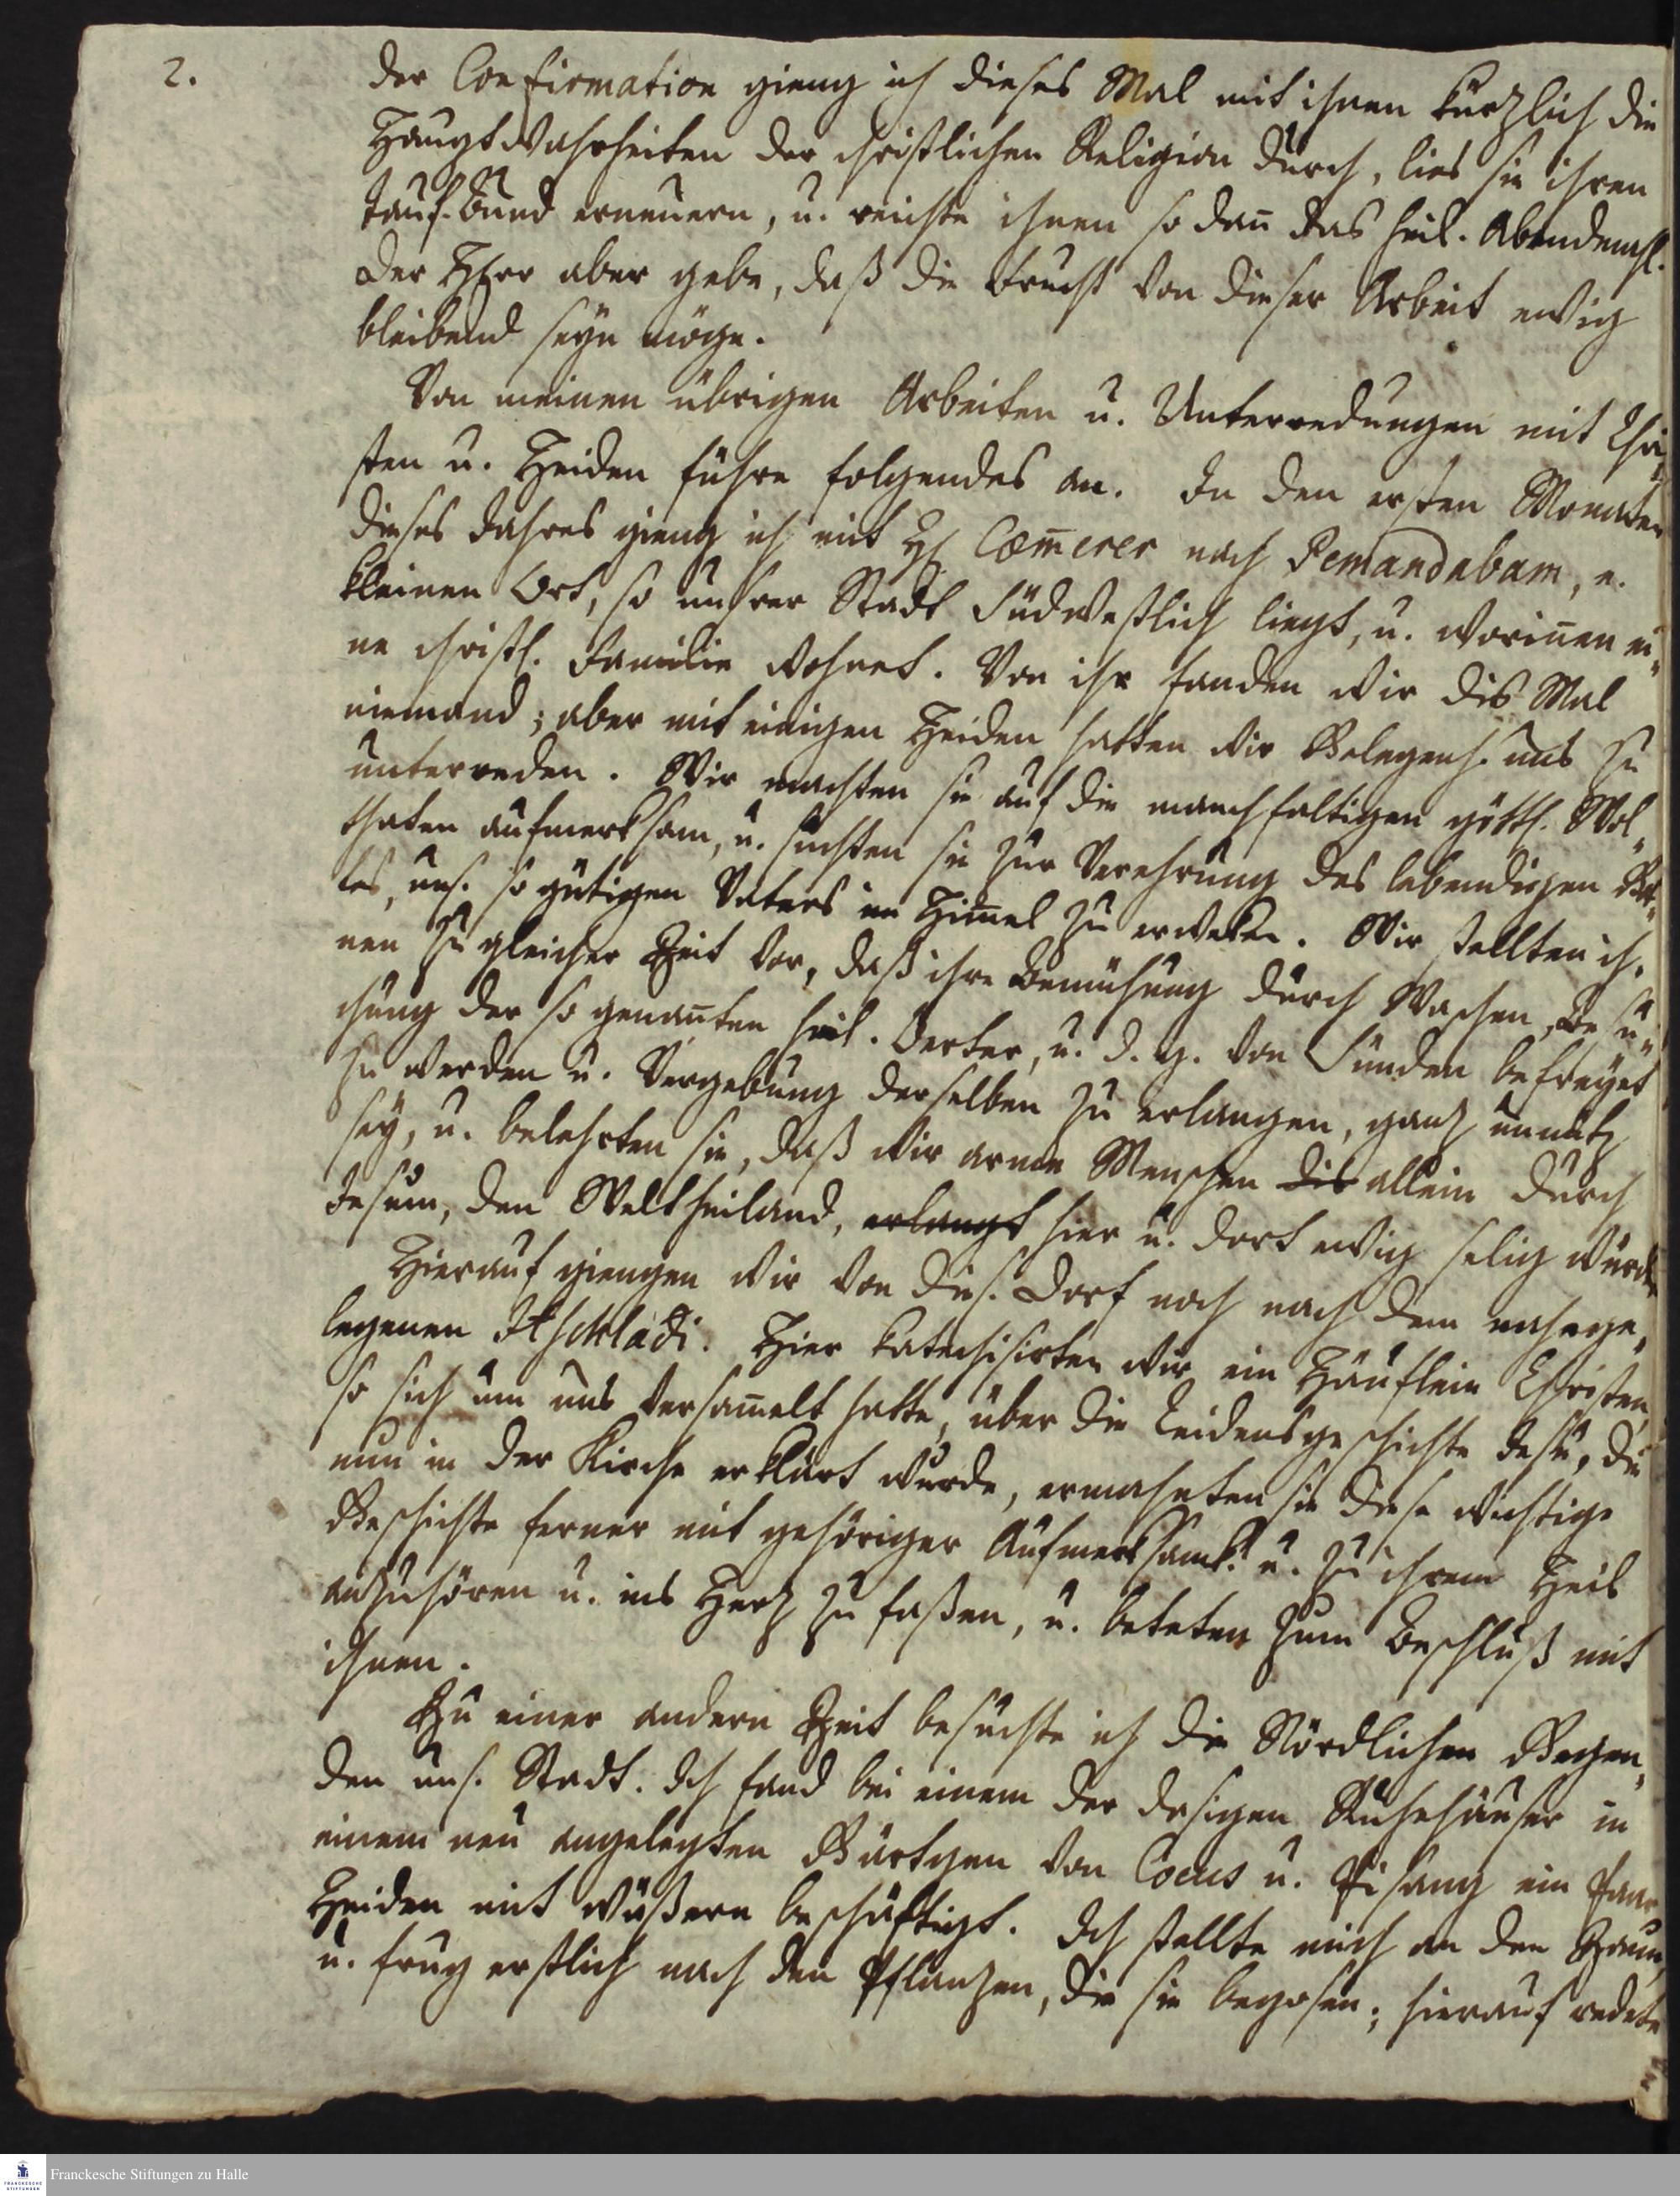 2.
der Confirmation gieng ich dieses Mal mit ihnen kürzlich die
Hauptwahrheiten der christlichen Religion durch, lies sie ihren
Tauf-Bund erneuern, u. reichte ihnen so dañ das heil. Abendmahl.
Der HErr aber gebe, daß die Frucht von dieser Arbeit ewig
bleibend seyn möge.
Von meinen übrigen Arbeiten u. Unterredungen mit Chri„
sten u. Heiden führe folgendes an. In den ersten Monaten
dieses Jahres gieng ich mit H. Cæm̄erer nach Pemandabam, e.
kleinen Ort, so unsrer Stadt südwestlich liegt, u. woriñen ei„
ne christl. Familie wohnet. Von ihr fanden wir dis Mal
niemand; aber mit einigen Heiden hatten wir Gelegenh. uns zu
unterreden. Wir machten sie auf die manchfaltigen göttl. Wol„
thaten aufmerksam, u. suchten sie zur Verehrung des lebendigen Got„
tes, uns. so gütigen Vaters im Him̄el zu erweken. Wir stellten ih„
nen zu gleicher Zeit vor, daß ihre Bemühung durch Waschen, Besu„
chung der so genañten heil. Oerter, u. d. g. von Sünden befreyet
zu werden u. Vergebung derselben zu erlangen, ganz unnütz
sey, u. belehrten sie, daß wir arme Menschen dis allein durch
Jesum, den Weltheiland, erlangt hier u. dort ewig selig würden
Hierauf giengen wir von dies. Dorf noch nach dem nahege„
legenen Itschkladi. Hier katechisirten wir ein Häuflein Christen,
so sich um uns versam̄elt hatte, über die Leidensgeschichte Jesu, die
nun in der Kirche erklärt wurde, ermahnten sie diese wichtige
Geschichte ferner mit gehöriger Aufmerksamk. u. zu ihrem Heil
anzuhören u. ins Herz zu faßen, u. beteten zum Beschluß mit
ihnen.
Zu einer andern Zeit besuchte ich die Nördlichen Gegen„
den uns. Stadt. Ich fand bei einem der dasigen Ruhehäuser in
einem neu angelegten Gärtgen von Cocus u. Pisang ein Paar
Heiden mit wäßern beschäftigt. Ich stellte mich an den Zaun,
u. frug erstlich nach den Pflanzen, die sie begosen; hierauf redete
Franckesche Stiftungen zu Halle